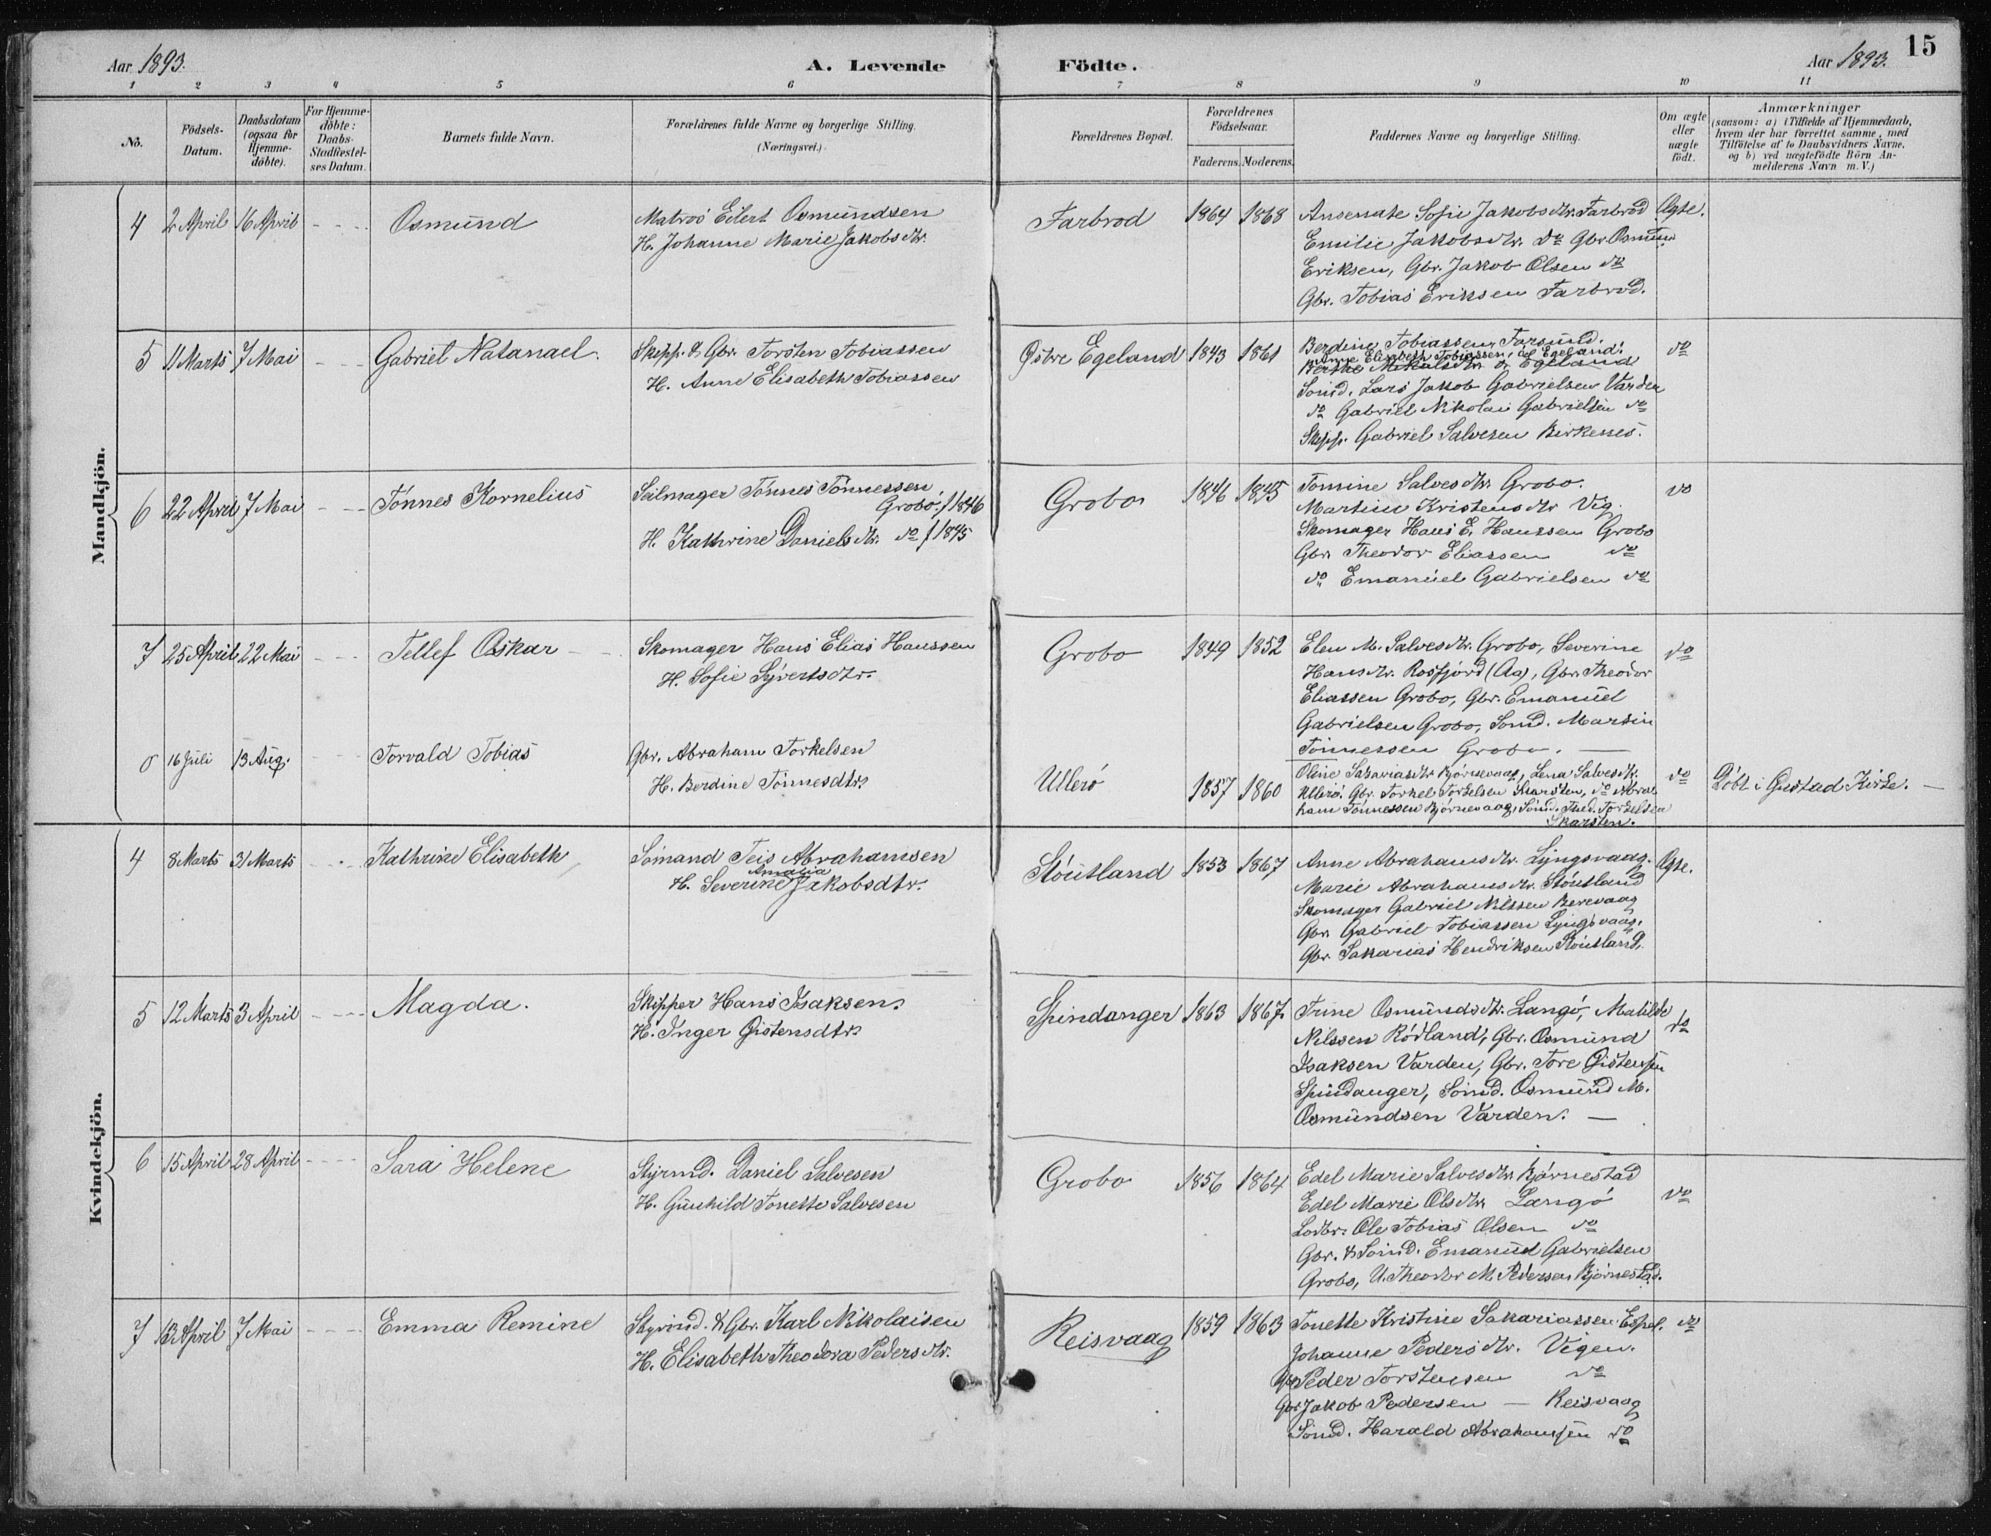 Aar 1893.
A. Levende Födte.
Aar 1893.
15
1 2 3 4 5 6 7 8 9 10 11
No.
Födsels-
Datum.
Daabsdatum
(ogsaa for
Hjemme-
døbte).
For Hjemme-
döbte:
Daabs-
Stadfæstel-
ses Datum.
Barnets fulde Navn.
Forældrenes fulde Navne og borgerlige Stilling.
(Næringsvei.)
Forældrenes Bopæl.
Forældrenes
Födselsaar.
Faderens. Moderens.
Faddernes Navne og borgerlige Stilling.
Om ægte
eller
uægte
födt.
Anmærkninger
(saasom: a) i Tilfælde af Hjemmedaab,
hvem der har forrettet samme, med
Tilföielse af to Daabsvidners Navne,
og b) ved uægtefödte Börn An-
melderens Navn m. V.)
Mandkjön.
4 2 April 16 April Osmund
Matros Eilert Osmundsen
H. Johanne Marie Jakobsdtr.
Farbrod 1864 1868
Ansenate Sofie Jakobsdtr. Farbrod
Emilie Jakobsdtr. do Gbr. Osmund
Eriksen, Gbr. Jakob Olsen do
Gbr. Tobias Eriksen Farbrod.
Ægte.
5 11 Marts 7 Mai Gabriel Natanael.
Skipp. & Gbr. Torsten Tobiassen
H. Anne Elisabeth Tobiassen
Østre Egeland 1843 1861
Berdine Tobiassen, Farsund.
Anne Elisabeth Tobiassen, Egeland.
Mikalsdtr. Egeland
Sömd. Lars Jakob Gabrielsen Varden
do Gabriel Nikolai Gabrielsen do
Skipp. Gabriel Salvesen Birkenes.
do
6 22 April 7 Mai Tönnes Kornelius
Seilmager Tönnes Tönnessen,
Grobö, f 1846
H. Kathrine Danielsdtr. do f 1845
Grobo 1846 1845
Tomine Salvesdtr. Grobo.
Martine Kristensdtr Vig.
Skomager Hans E. Hanssen Grobo
Gbr. Theodor Eliassen do
do Emanuel Gabrielsen do
do
7 25 April 22 Mai Tellef Oskar
Skomager Hans Elias Hanssen
H. Sofie Syvertsdtr.
Grobo 1849 1852
Elen M. Salvesdtr. Grobo, Severine
Hansdtr. Rosfjord (Aa), Gbr. Theodor
Eliassen Grobo, Gbr. Emanuel
Gabrielsen Grobo, Sömd. Martin
Tönnessen Grobo.
do
16 Juli 13 Aug. Torvald Tobias
Gbr. Abraham Torkelsen
H. Berdine Tönnesdtr.
Ullerö 1857 1860
Oline Sakariasdtr Bjørnevaag, Lena Salvesdtr.
Ullerö. Gbr. Torkel Torkelsen Skarsten, do Abra-
ham Tönnessen Bjørnevaag, Sömd. Thed. Torkelsen
Skarsten.
do
Döbt i Gjestad Kirke.
Kvindekjön.
4 8 Marts 31 Marts Kathrine Elisabeth
Sömand Teis Abrahamsen
Amalia
H. Severine Jakobsdtr.
Stöutland 1853 1867
Anne Abrahamsdtr. Lyngsvaag.
Marie Abrahamsdtr. Stöutland
Skomager Gabriel Nilssen Berevaag
Gbr. Gabriel Tobiassen Lyngsvaag.
Gbr. Sakarias Hendriksen Stöutland.
Ægte.
5 12 Marts 3 April Magda.
Skipper Hans Isaksen.
H. Inger Øistensdtr.
Spindanger 1863 1867
Trine Osmundsdtr. Langö, Matilde
Nilssen Rödland, Gbr. Osmund
Isaksen Varden, Gbr. Tore Øistensen
Spindanger, Sömd. Osmund M.
Osmundsen Varden.
do
6 15 April 28 April Sara Helene
Styrmd. Daniel Salvesen
H. Gunhild Tonette Salvesen
Grobo 1856 1864
Edel Marie Salvesdtr. Bjørnestad
Edel Marie Olsdtr. Langö
Lodbr. Ole Tobias Olsen do
Gbr. & Sömd. Emanuel Gabrielsen
Grobo, U. Theodor M. Pedersen Bjørnestad.
do
7 13 April 7 Mai Emma Remine
Styrmd. & Gbr. Karl Nikolaisen
H. Elisabeth Theodora Pedersdtr.
Reisvaag 1859 1863
Tonette Kristine Sakariassen Espel.
Johanne Pedersdtr. Vigen.
Gbr Peder Torstensen do
Gbr Jakob Pedersen — Reisvaag
Sömd. Harald Abrahamsen do
do